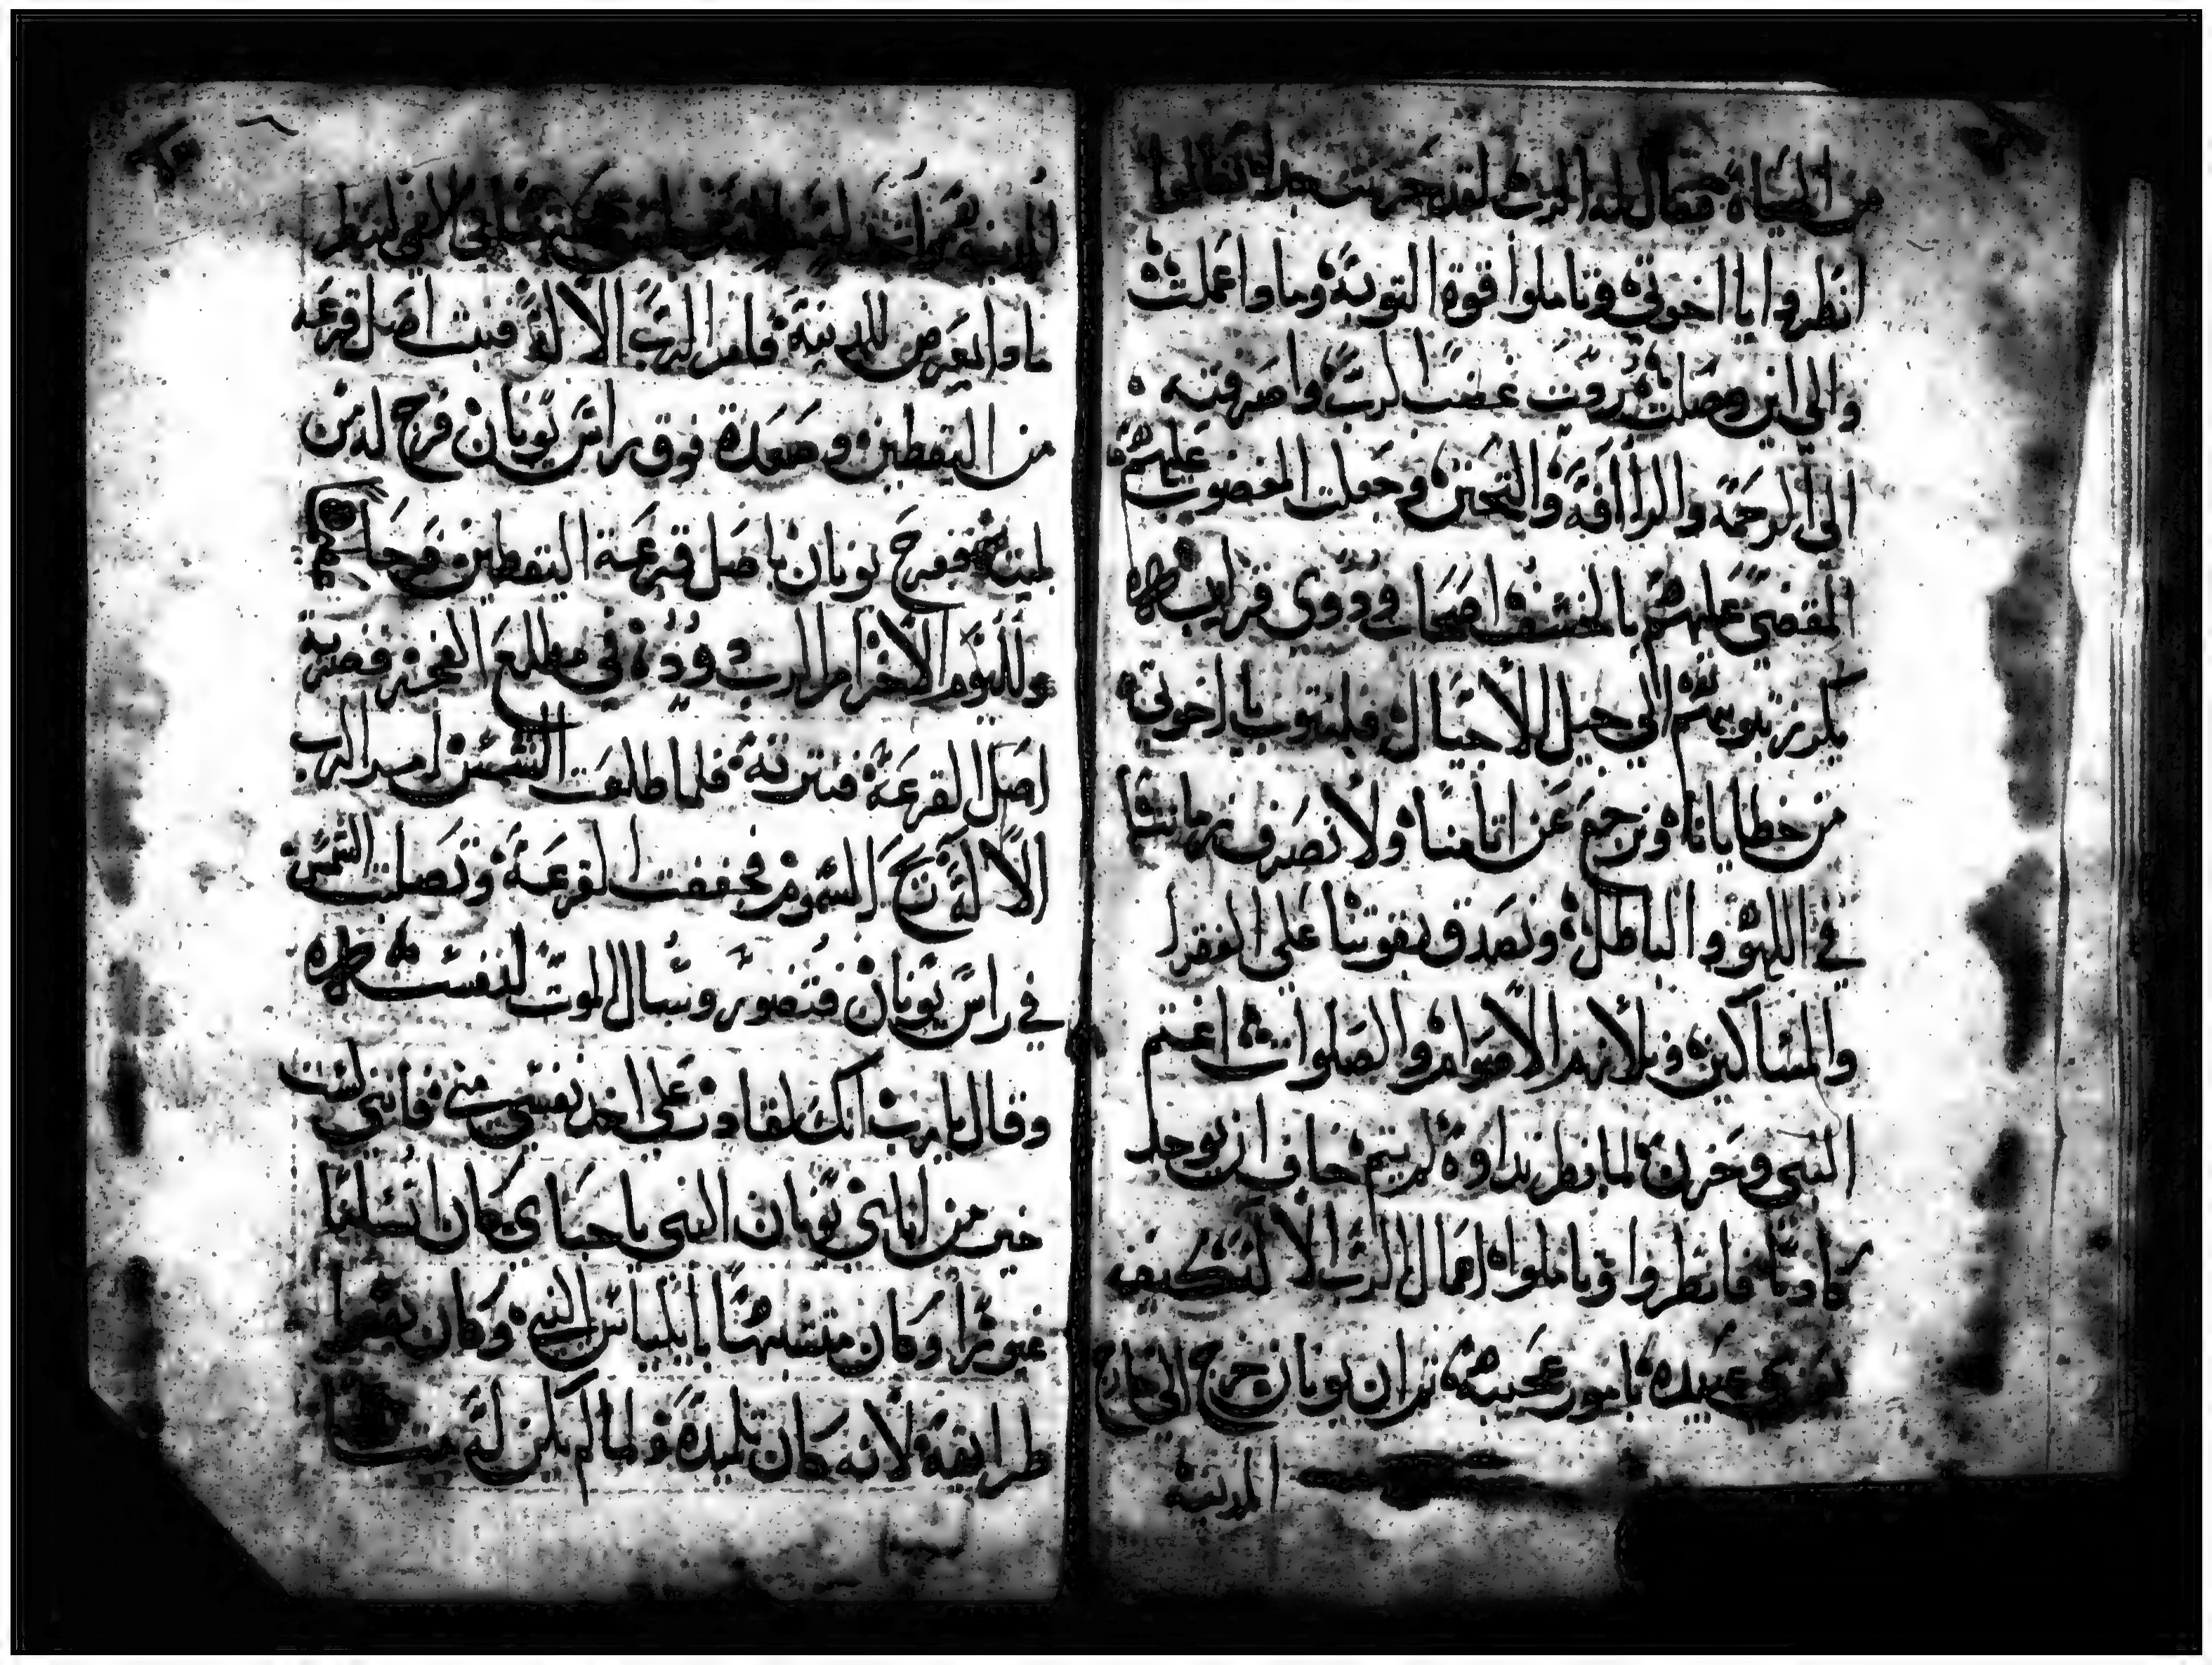 من الحياة فقال له الرب لقد حزنت جدا تعالوا
انظروا يا اخوتي وتاملوا قوة التوبة وماوا عملت
والى اين وصلت ردت غضب الرب واصرفته
الى الرحمة والراافة والتحنن وجعلت المغضوب عليهم
المقضي عليهم بالخسف اصحا ودوى قرابين طره
يكرز بتوبتهم الى جيل الاجيال فلنتوب يا اخوتي
من خطايانا ونرجع عن اثامنا ولا نصرف زماننا
في اللهو والباطل ونصدق بقوتنا على الفقرا
والمساكين ونلازم الاصوام والصلوات اغتم
النبي وحزن لما نظر نداوه لم يتم خاف ان يوجد
كادبا فانظروا وتاملوا امهال الرب الاله كيف
عبيده بامور عجيبة ثم ان يونان خرج الى خارج
المدينة
ماوا يعرض للمدينة فامر الرب الاله فنبت اصل قرعة
من اليقطين وصعدة فوق راس يونان فرح له من
ففرح يونان باصل قرعة اليقطين فرحا
ولليوم الاخر امر الرب دودة في مطلع الفجر فضربة
اصل القرعة فنترته فلما طلعت الشمس امر الرب
الاله ريح السموم فجففت القرعة وتصلت الشمس
في راس يونان فتضور وسال الموت لنفسه
وقال يارب انك لقادر على اخد نفسي مني فانني لست
خير من ابائي يونان النبي يا احباي كان انسانا
غيورا وكان متشبها باايلياس النبي وكان
طرايقه لانه كان تلميده ولما لم يكن له